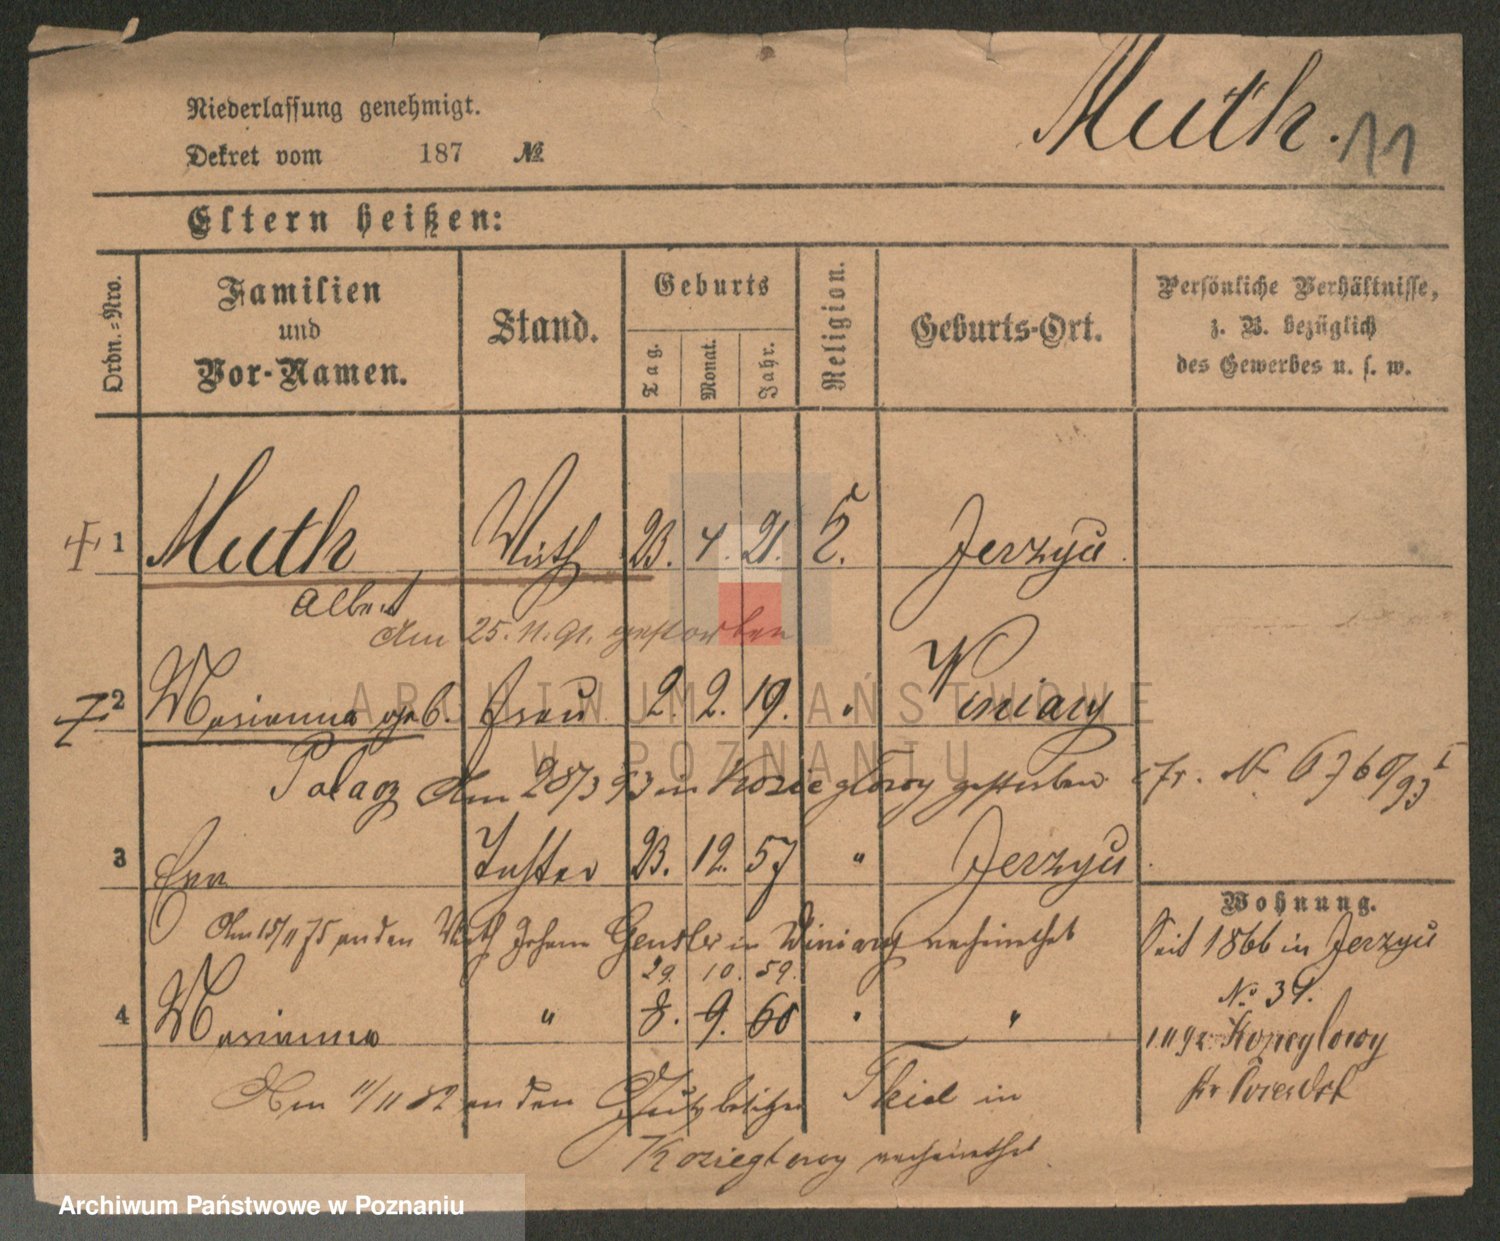 Niederlassung genehmigt.
Dekret vom 187 №
Muth. 11
Eltern heißen:
Ordn.=Nro.
Familien
und
Vor-Namen.
Stand.
Geburts
Tag.
Monat.
Jahr.
Religion.
Geburts-Ort.
Persönliche Verhältnisse,
z. B. bezüglich
des Gewerbes u. s. w.
1 Muth Wirth 23. 4. 21. Jerzyce.
Albert
Am 25. 11. 91. gestorben
2 Marianna geb. Frau 2. 2. 19. " Winiary
Palacz Am 28/3 93 in Koziegłowy gestorben cfr. N 6760/93 I
3 Eva Tochter 23. 12. 57 " Jerzyce.
Am 15/11 75 an den Wirth Johann Gensler in Winiary verheirathet
29. 10. 59.
4 Marianna " 8. 9. 60 " "
Am 11/11 82 an den Gutsbesitzer Theil in
Koziegłowy verheirathet.
Wohnung.
Seit 1866 in Jerzyce
No. 34.
Koziegłowy
ARCHIWUM PAŃSTWOWE
W POZNANIU
Archiwum Państwowe w Poznaniu